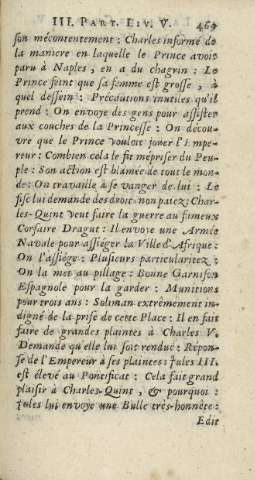 III. PART. LIV. V. 469
son mécontentement : Charles informé de
la maniere en laquelle le Prince avoit
paru à Naples, en a du chagrin : Le
Prince feint que sa femme est grosse, à
quel dessein : Précautions inutiles qu'il
prend : On envoye des gens pour assister
aux couches de la Princesse : On décou-
vre que le Prince vouloit jouer l'Empe-
reur : Combien cela le fit mépriser du Peu-
ple : Son action est blamée de tout le mon-
de : On travaille à se vanger de lui : Le
fisc lui demande des droits non payez; Char-
les-Quint veut faire la guerre au fameux
Corsaire Dragut : Il envoie une Armée
Navale pour assiéger la Ville d'Afrique :
On l'assiége : Plusieurs particularitez :
On la met au pillage : Bonne Garnison
Espagnole pour la garder : Munitions
pour trois ans : Soliman extrêmement in-
digné de la prise de cette Place : Il en fait
faire de grandes plaintes à Charles V.
Demande qu'elle lui soit rendue : Répon-
se de l'Empereur à ses plaintes : Jules III.
est élevé au Pontificat : Cela fait grand
plaisir à Charles-Quint, & pourquoi :
Jules lui envoye une Bulle très-honnête :
Edit